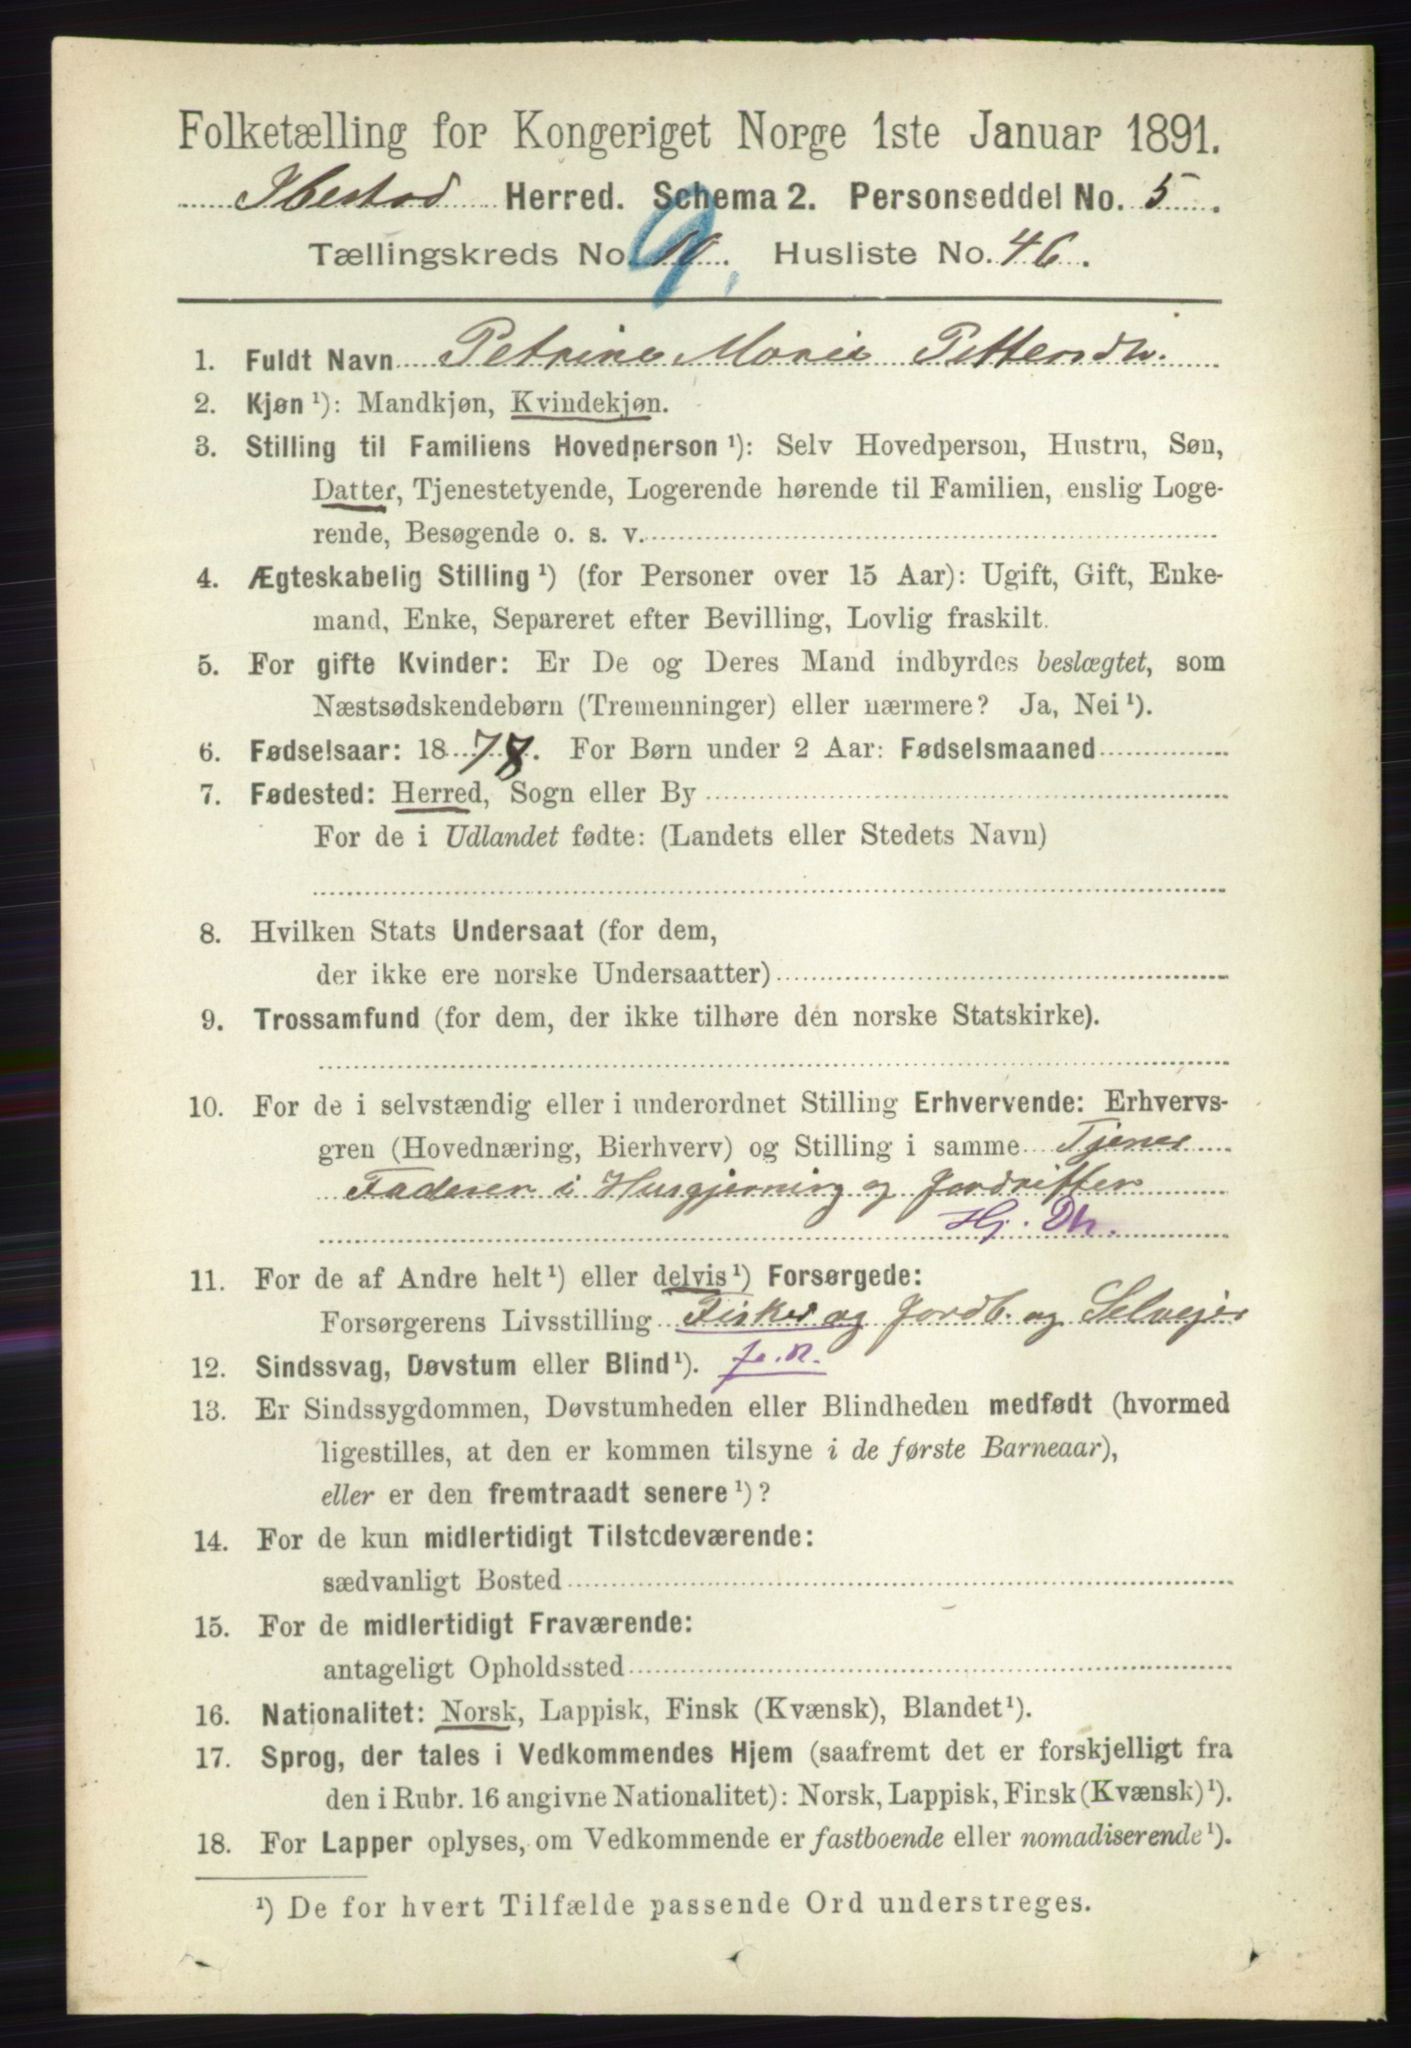 Folketælling for Kongeriget Norge 1ste Januar 1891.
Ibestad Herred. Schema 2. Personseddel No. 5.
Tællingskreds No. 10. 9. Husliste No. 46.
1. Fuldt Navn Petrine Marie Pettersdtr.
2. Kjøn ¹): Mandkjøn, Kvindekjøn.
3. Stilling til Familiens Hovedperson ¹): Selv Hovedperson, Hustru, Søn,
Datter, Tjenestetyende, Logerende hørende til Familien, enslig Loge-
rende, Besøgende o. s. v.
4. Ægteskabelig Stilling ¹) (for Personer over 15 Aar): Ugift, Gift, Enke-
mand, Enke, Separeret efter Bevilling, Lovlig fraskilt.
5. For gifte Kvinder: Er De og Deres Mand indbyrdes beslægtet, som
Næstsødskendebørn (Tremenninger) eller nærmere? Ja, Nei ¹).
6. Fødselsaar: 1878. For Børn under 2 Aar: Fødselsmaaned
7. Fødested: Herred, Sogn eller By
For de i Udlandet fødte: (Landets eller Stedets Navn)
8. Hvilken Stats Undersaat (for dem,
der ikke ere norske Undersaatter)
9. Trossamfund (for dem, der ikke tilhøre den norske Statskirke).
10. For de i selvstændig eller i underordnet Stilling Erhvervende: Erhvervs-
gren (Hovednæring, Bierhverv) og Stilling i samme Tjener
Faderen i Husgjerning og Jordriften
Hj. Dtr.
11. For de af Andre helt ¹) eller delvis ¹) Forsørgede:
Forsørgerens Livsstilling Fisker og Jordb. og Selveier
12. Sindssvag, Døvstum eller Blind ¹). f.n.
13. Er Sindssygdommen, Døvstumheden eller Blindheden medfødt (hvormed
ligestilles, at den er kommen tilsyne i de første Barneaar),
eller er den fremtraadt senere ¹)?
14. For de kun midlertidigt Tilstedeværende:
sædvanligt Bosted
15. For de midlertidigt Fraværende:
antageligt Opholdssted
16. Nationalitet: Norsk, Lappisk, Finsk (Kvænsk), Blandet ¹).
17. Sprog, der tales i Vedkommendes Hjem (saafremt det er forskjelligt fra
den i Rubr. 16 angivne Nationalitet): Norsk, Lappisk, Finsk (Kvænsk) ¹).
18. For Lapper oplyses, om Vedkommende er fastboende eller nomadiserende ¹).
¹) De for hvert Tilfælde passende Ord understreges.